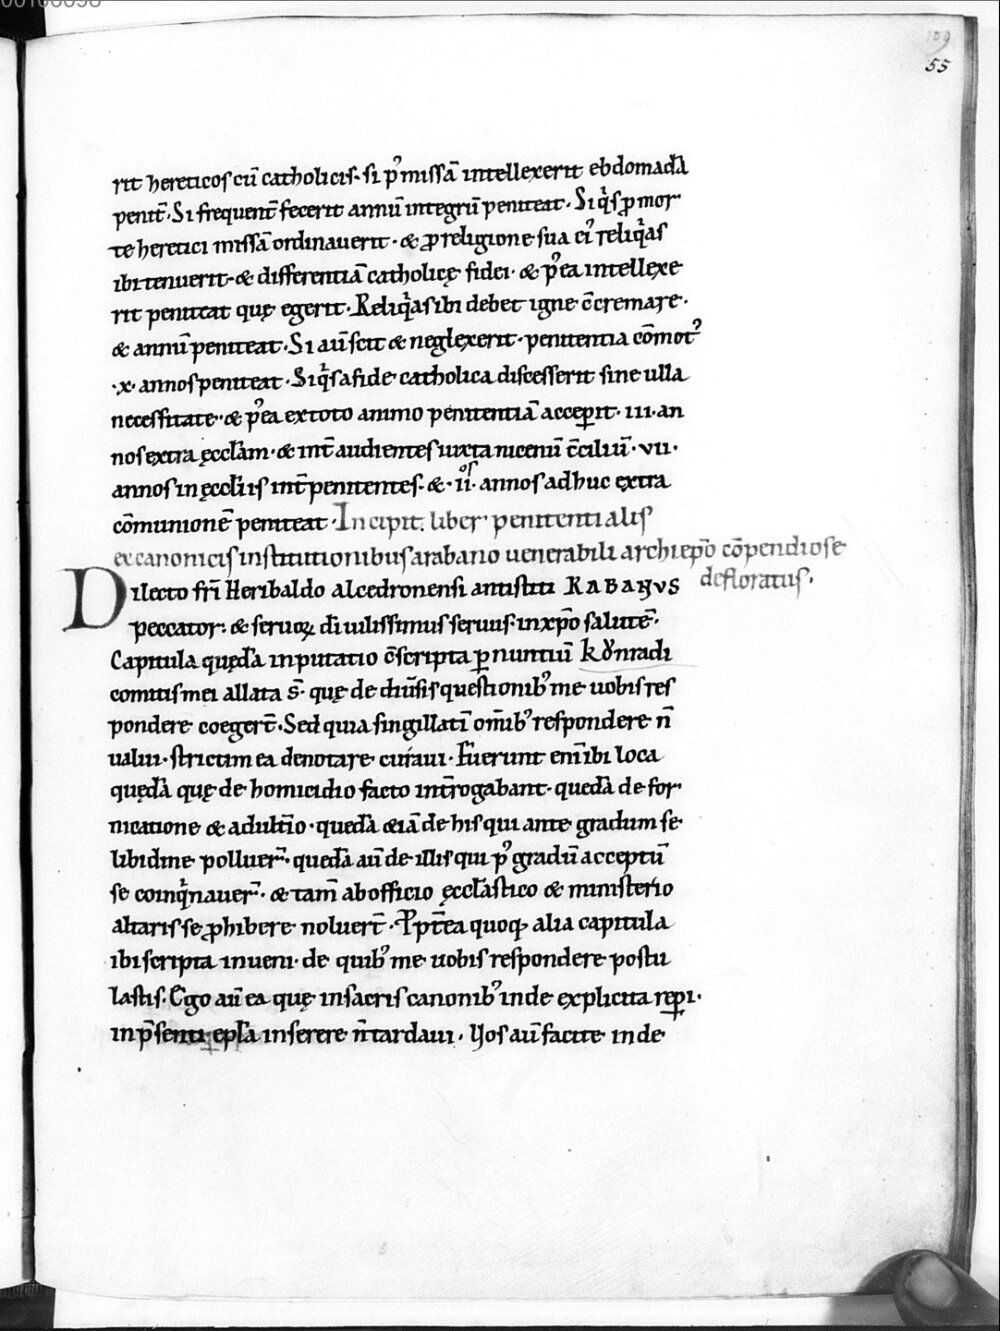 109
55
rit hereticos cū catholicis· si pꝰ missā intellexerit ebdomadā
penit̄· Si frequent̄ fecerit annū integrū peniteat· Siqͥs ꝓ mor
te heretici missā ordinauerit· & ꝓ religione sua eiꝰ reliqͥas
ibi tenuerit· & differentiā catholicę fidei· & pꝰea intellexe
rit peniteat quę egerit· Reliqͥas ibi debet igne c̄cremare·
& annū peniteat· Si aū scit & neglexerit· penitentia cōmotꝰ
·x· annos peniteat· Siqͥs a fide catholica discesserit sine ulla
necessitate· & pꝰea ex toto animo penitentiā acceꝑit· iii· an
nos extra ęccłam· & int̄ audientes iuxta nicenū c̄ciliū· vii·
annos in ęccłiis int̄ penitentes· & ·iiᵒˢ· annos adhuc extra
cōmunionē peniteat· Incipit liber penitentialis
ex canonicis institutionibus a rabano uenerabili archiep̄o cōpendiose
defloratus·
Dilecto fr̄i Heribaldo alcedronensi antistiti RABANVS
peccator· & seruoꝝ dī uilissimus seruus· in xp̄o salutē·
Capitula quędā in putatio c̄scripta ꝑ nuntiū kŏnradi
comitis mei allata s̄· quę de diūsis questionibꝰ me uobis res
pondere coegert̄· Sed quia singillatī om̄ibꝰ respondere n̄
ualui· strictim ea denotare curaui· Fuerunt eni̅ ibi loca
quędā quę de homicidio facto int̄rogabant· quedā de for
nicatione & adult̄io· quedā &iā de his qui ante gradum se
libidine polluer̄· quedā aū de illis qui pꝰ gradū acceptū
se coinqͥnauer̄· & tam̄ ab officio ęccłastico & ministerio
altaris se ꝓhibere noluert̄· Ꝓpt̄ea quoqꝫ alia capitula
ibi scripta inueni· de quibꝰ me uobis respondere postu
lastis· Ego aū ea quę in sacris canonibꝰ inde explicita reꝑi·
in p̄senti epła inserere n̄ tardaui· Uos aū facite inde